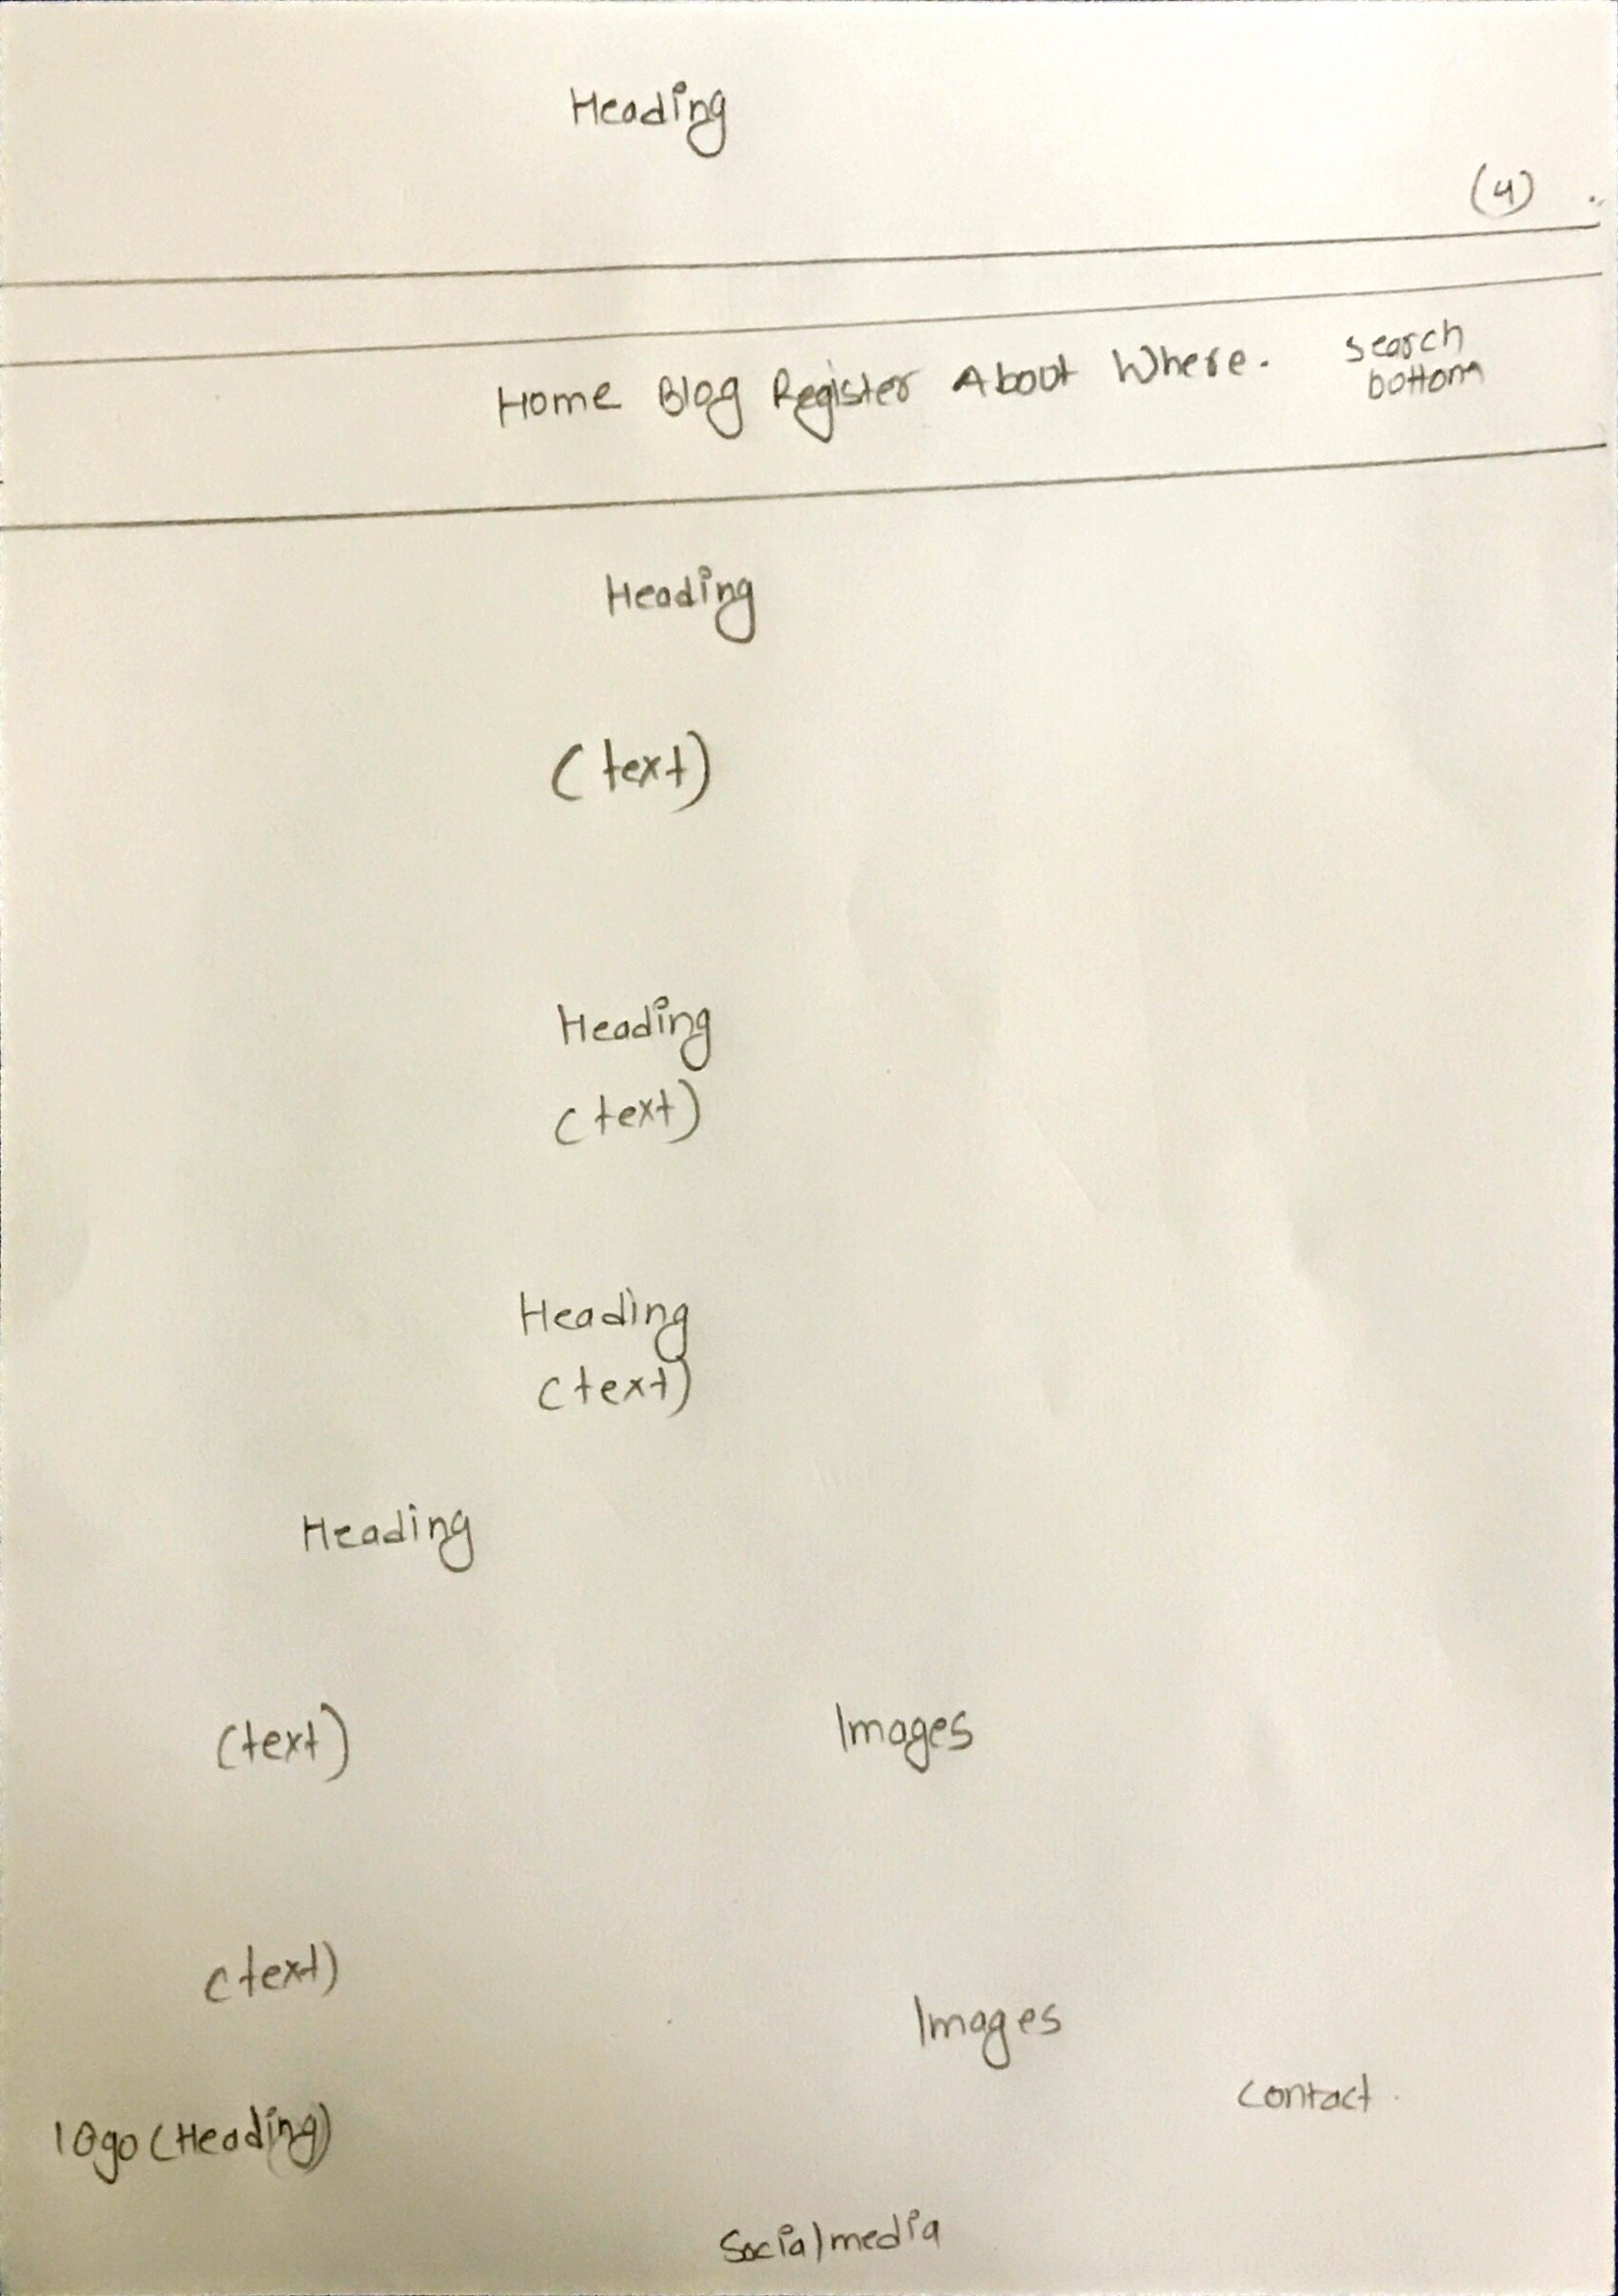 Heading
(4)
Home Blog Register About Where. search
bottom
Heading
(text)
Heading
(text)
Heading
(text)
Heading
(text) Images
(text)
Images
contact.
logo (Heading)
Social media